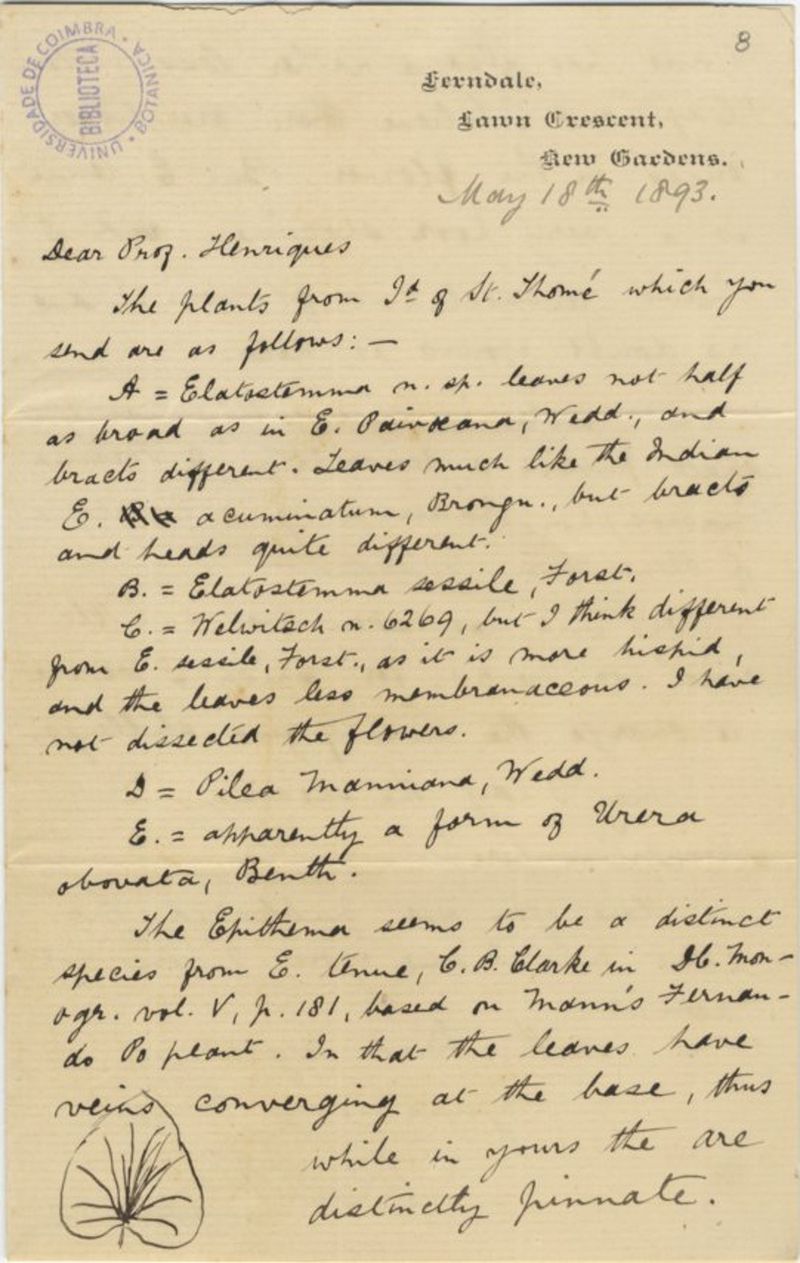 8
UNIVERSIDADE DE COIMBRA · BOTANICA ·
BIBLIOTECA
Ferndale,
Lawn Crescent,
Kew Gardens.
May 18th 1893.
Dear Prof. Henriques
The plants from Id of St. Thomé which you
send are as follows: —
A = Elatostemma n. sp. leaves not half
as broad as in E. Paivaeana, Wedd., and
bracts different. Leaves much like the Indian
E. acuminatum, Brongn., but bracts
and heads quite different.
B. = Elatostemma sessile, Forst.
C. = Welwitsch n. 6269, but I think different
from E. sessile, Forst., as it is more hispid,
and the leaves less membranaceous. I have
not dissected the flowers.
D = Pilea Manniana, Wedd.
E. = apparently a form of Urera
obovata, Benth.
The Epithema seems to be a distinct
species from E. tenue, C. B. Clarke in DC. Mon-
ogr. vol. V, p. 181, based on Mann's Fernan-
do Po plant. In that the leaves have
veins converging at the base, thus
while in yours the are
distinctly pinnate.